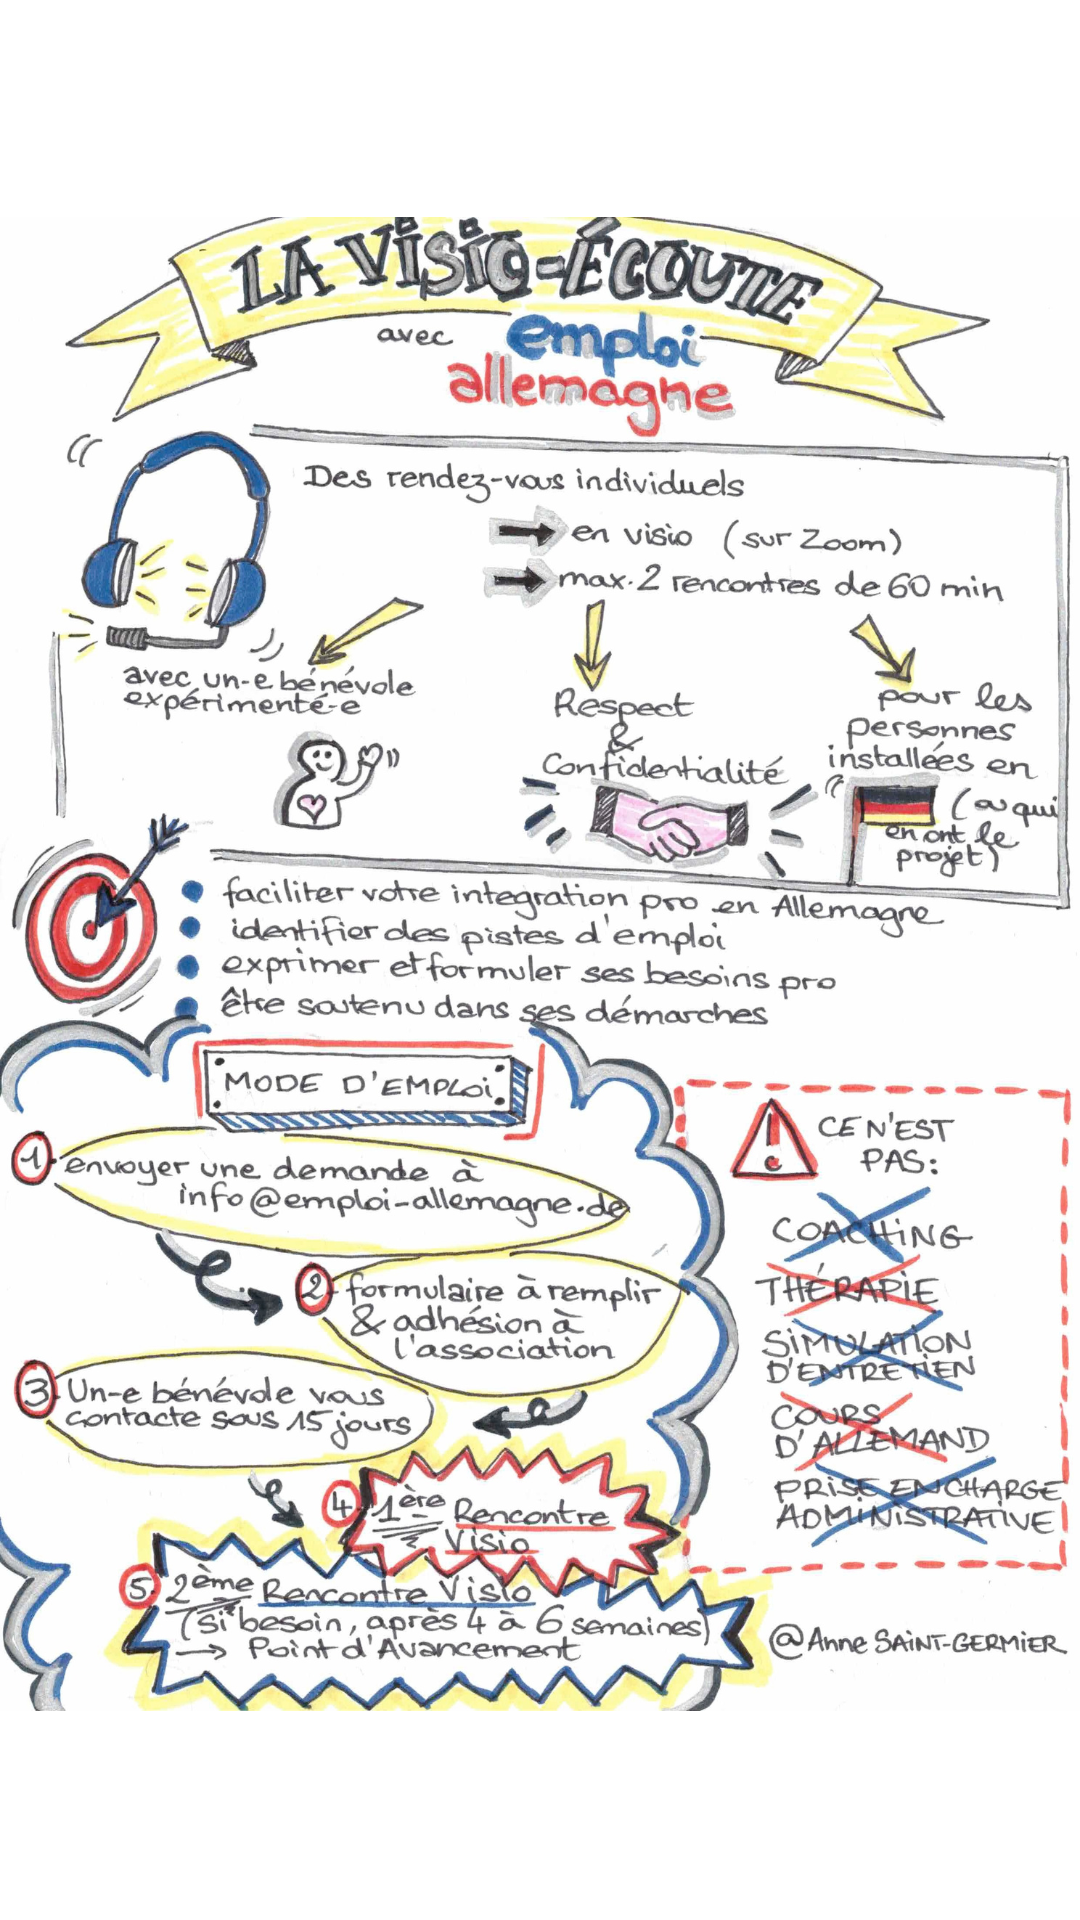 LA VISIO-ÉCOUTE
avec emploi
allemagne
Des rendez-vous individuels
en visio (sur Zoom)
max. 2 rencontres de 60 min
avec un-e bénévole
expérimenté-e
Respect
&
Confidentialité
pour les
personnes
installées en
(ou qui
en ont le
projet)
faciliter votre integration pro en Allemagne
identifier des pistes d'emploi
exprimer et formuler ses besoins pro
être soutenu dans ses démarches
MODE D'EMPLOI
1 envoyer une demande à
info@emploi-allemagne.de
2 formulaire à remplir
& adhésion à
l'association
3 Un-e bénévole vous
contacte sous 15 jours
4 1ère Rencontre
Visio
5 2ème Rencontre Visio
(si besoin, après 4 à 6 semaines)
→ Point d'Avancement
CE N'EST
PAS:
COACHING
THÉRAPIE
SIMULATION
D'ENTRETIEN
COURS
D'ALLEMAND
PRISE EN CHARGE
ADMINISTRATIVE
@Anne SAINT-GERMIER